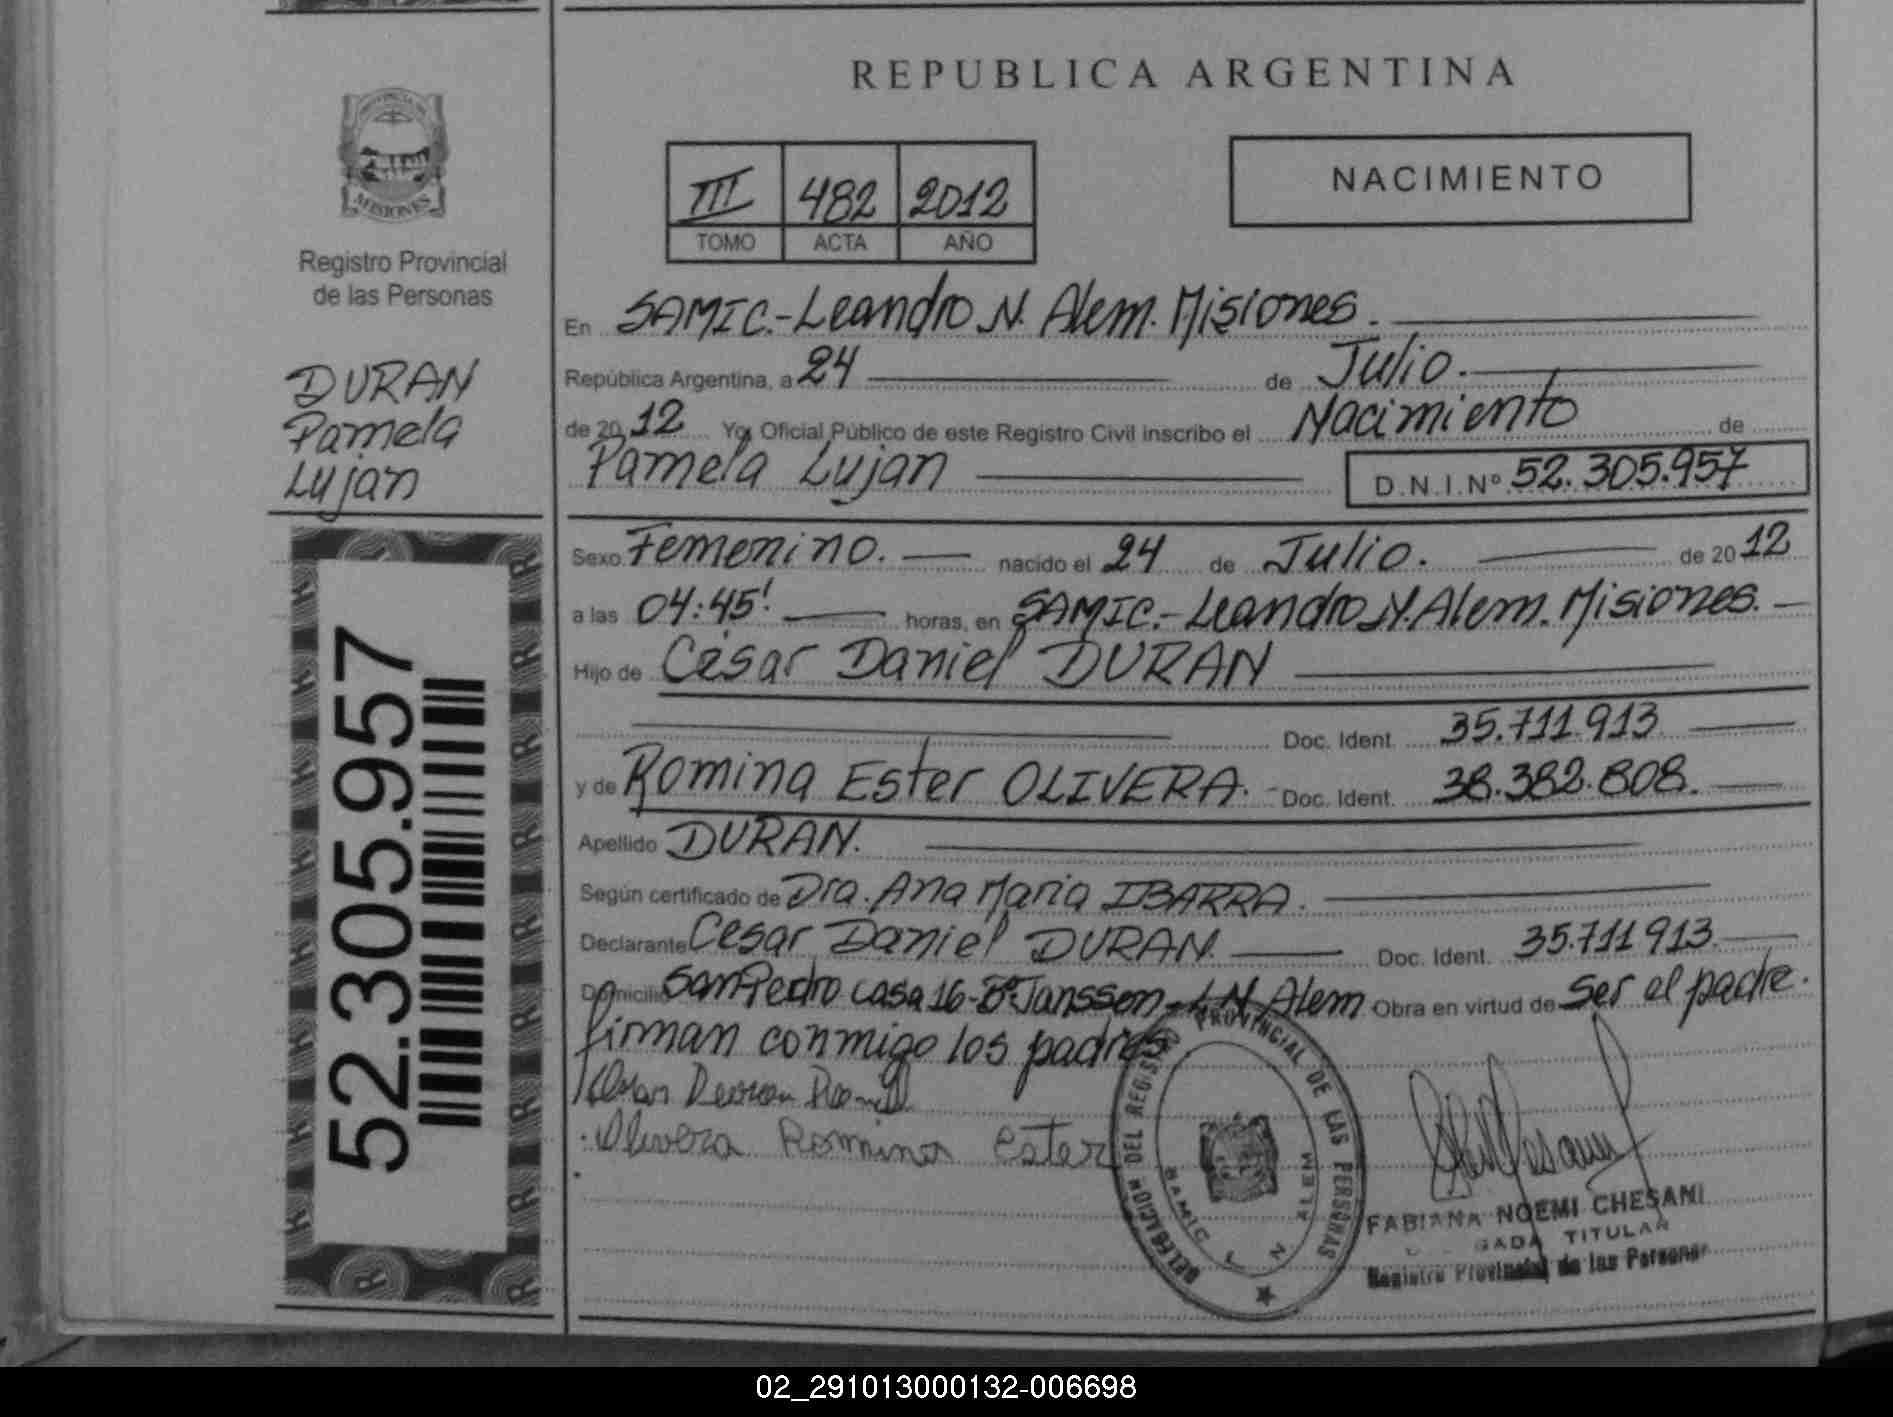 REPUBLICA ARGENTINA
MISIONES
Registro Provincial
de las Personas
DURAN
Pamela
Lujan
52.305.957
III 482 2012
TOMO ACTA AÑO
NACIMIENTO
En SAMIC.-Leandro N. Alem. Misiones.
República Argentina, a 24 de Julio.
de 2012 Yo, Oficial Público de este Registro Civil inscribo el Nacimiento de
Pamela Lujan D.N.I.Nº 52.305.957
Sexo Femenino. nacido el 24 de Julio. de 2012
a las 04:45' horas, en SAMIC.-Leandro N. Alem. Misiones.
Hijo de César Daniel DURAN
Doc. Ident. 35.711.913
y de Romina Ester OLIVERA.- Doc. Ident. 38.382.808.
Apellido DURAN.
Según certificado de Dra. Ana Maria IBARRA.
Declarante Cesar Daniel DURAN. Doc. Ident. 35.711.913.
Domicilio San Pedro casa 16-Bº Jansson-L.N. Alem Obra en virtud de Ser el padre.
firman conmigo los padres
Olivera Romina Ester
DELEGACION DEL REGISTRO PROVINCIAL DE LAS PERSONAS
SAMIC L N ALEM
FABIANA NOEMI CHESANI
TITULAR
Registro Provincial de las Personas
02_291013000132-006698